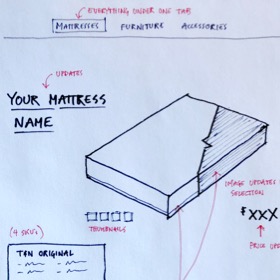 EVERYTHING UNDER ONE TAB
MATTRESSES FURNITURE ACCESSORIES
UPDATES
YOUR MATTRESS
NAME
IMAGE UPDATES
SELECTION
$XXX
(4 SKUs)
THUMBNAILS
PRICE UPD
TFN ORIGINAL